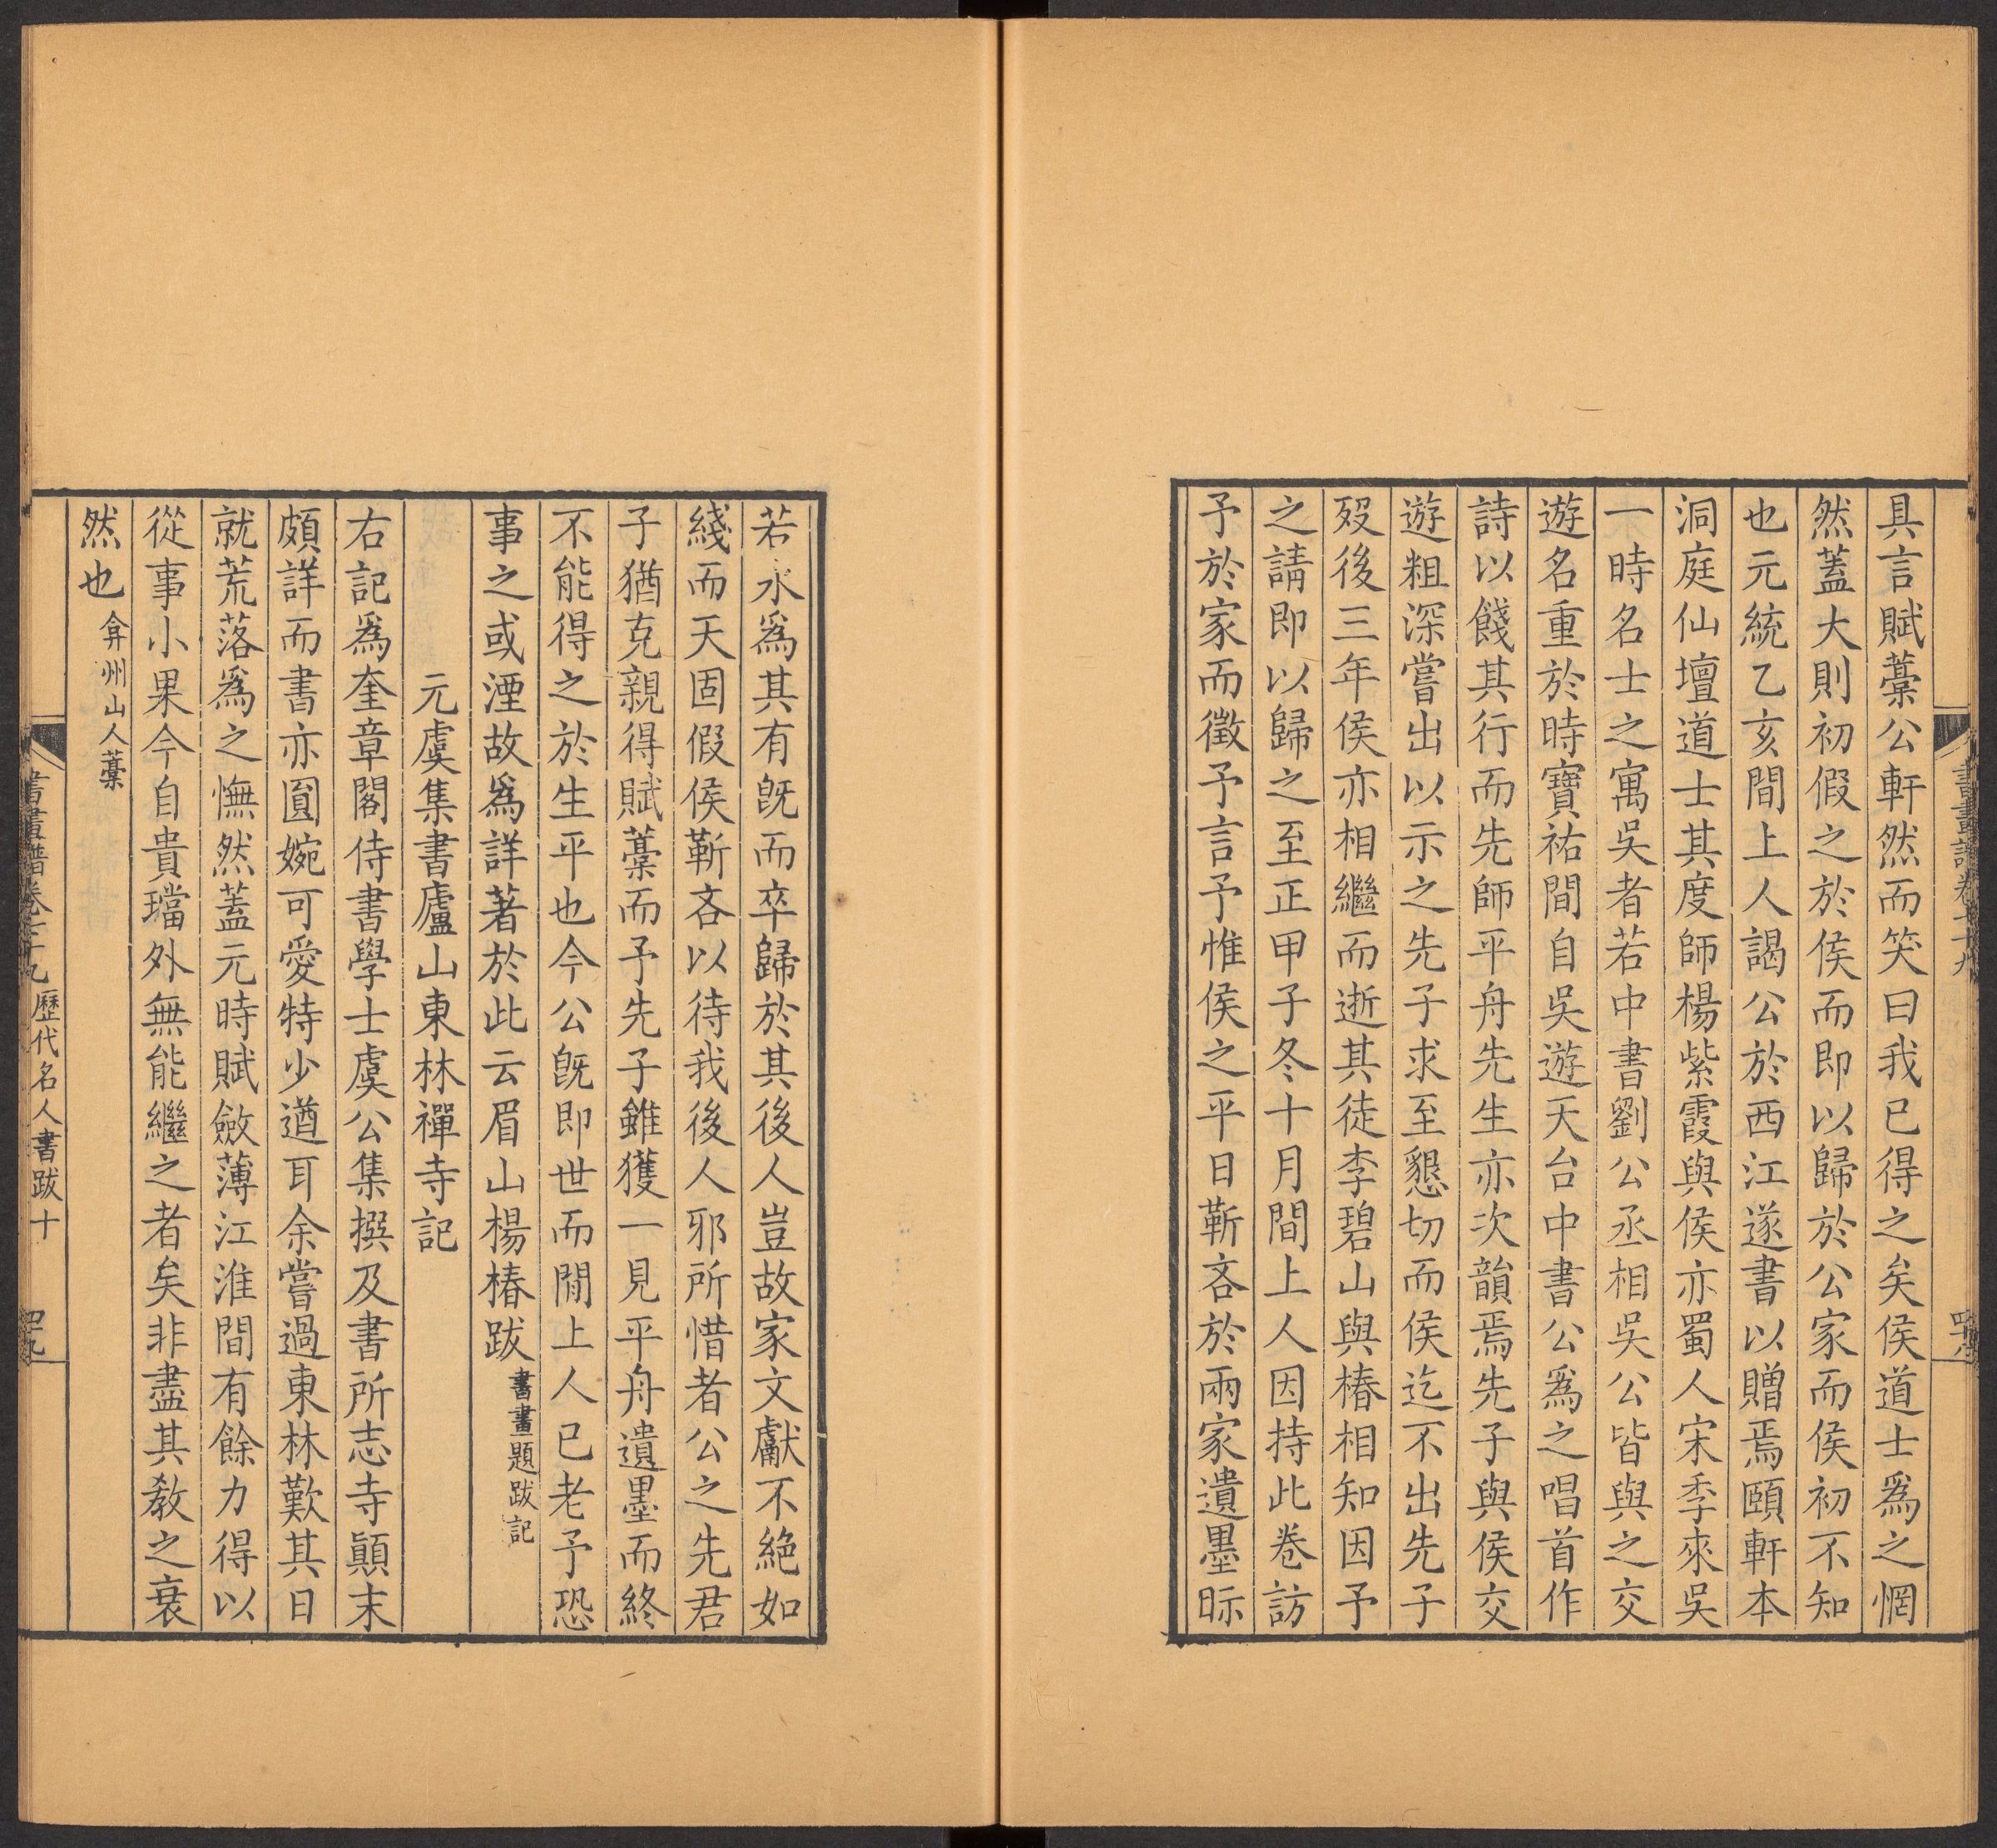 具言賦藁公軒然而笑曰我已得之矣侯道士爲之惘
然蓋大則初假之於侯而即以歸於公家而侯初不知
也元統乙亥間上人謁公於西江遂書以贈焉頤軒本
洞庭仙壇道士其度師楊紫霞與侯亦蜀人宋季來吳
一時名士之寓吳者若中書劉公丞相吳公皆與之交
遊名重於時寶祐間自吳遊天台中書公爲之唱首作
詩以餞其行而先師平舟先生亦次韻焉先子與侯交
遊粗深嘗出以示之先子求至懇切而侯迄不出先子
歿後三年侯亦相繼而逝其徒李碧山與椿相知因予
之請即以歸之至正甲子冬十月間上人因持此卷訪
予於家而徵予言予惟侯之平日靳吝於兩家遺墨眎
若水爲其有旣而卒歸於其後人豈故家文獻不絕如
綫而天固假侯靳吝以待我後人邪所惜者公之先君
子猶克親得賦藁而予先子雖獲一見平舟遺墨而終
不能得之於生平也今公旣即世而閒上人已老予恐
事之或湮故爲詳著於此云眉山楊椿跋書畫題跋記
元虞集書廬山東林禪寺記
右記爲奎章閣侍書學士虞公集撰及書所志寺顚末
頗詳而書亦圓婉可愛特少遒耳余嘗過東林歎其日
就荒落爲之憮然蓋元時賦斂薄江淮間有餘力得以
從事小果今自貴璫外無能繼之者矣非盡其敎之衰
然也弇州山人藁
書畫譜卷七十九 歷代名人書跋十 四九